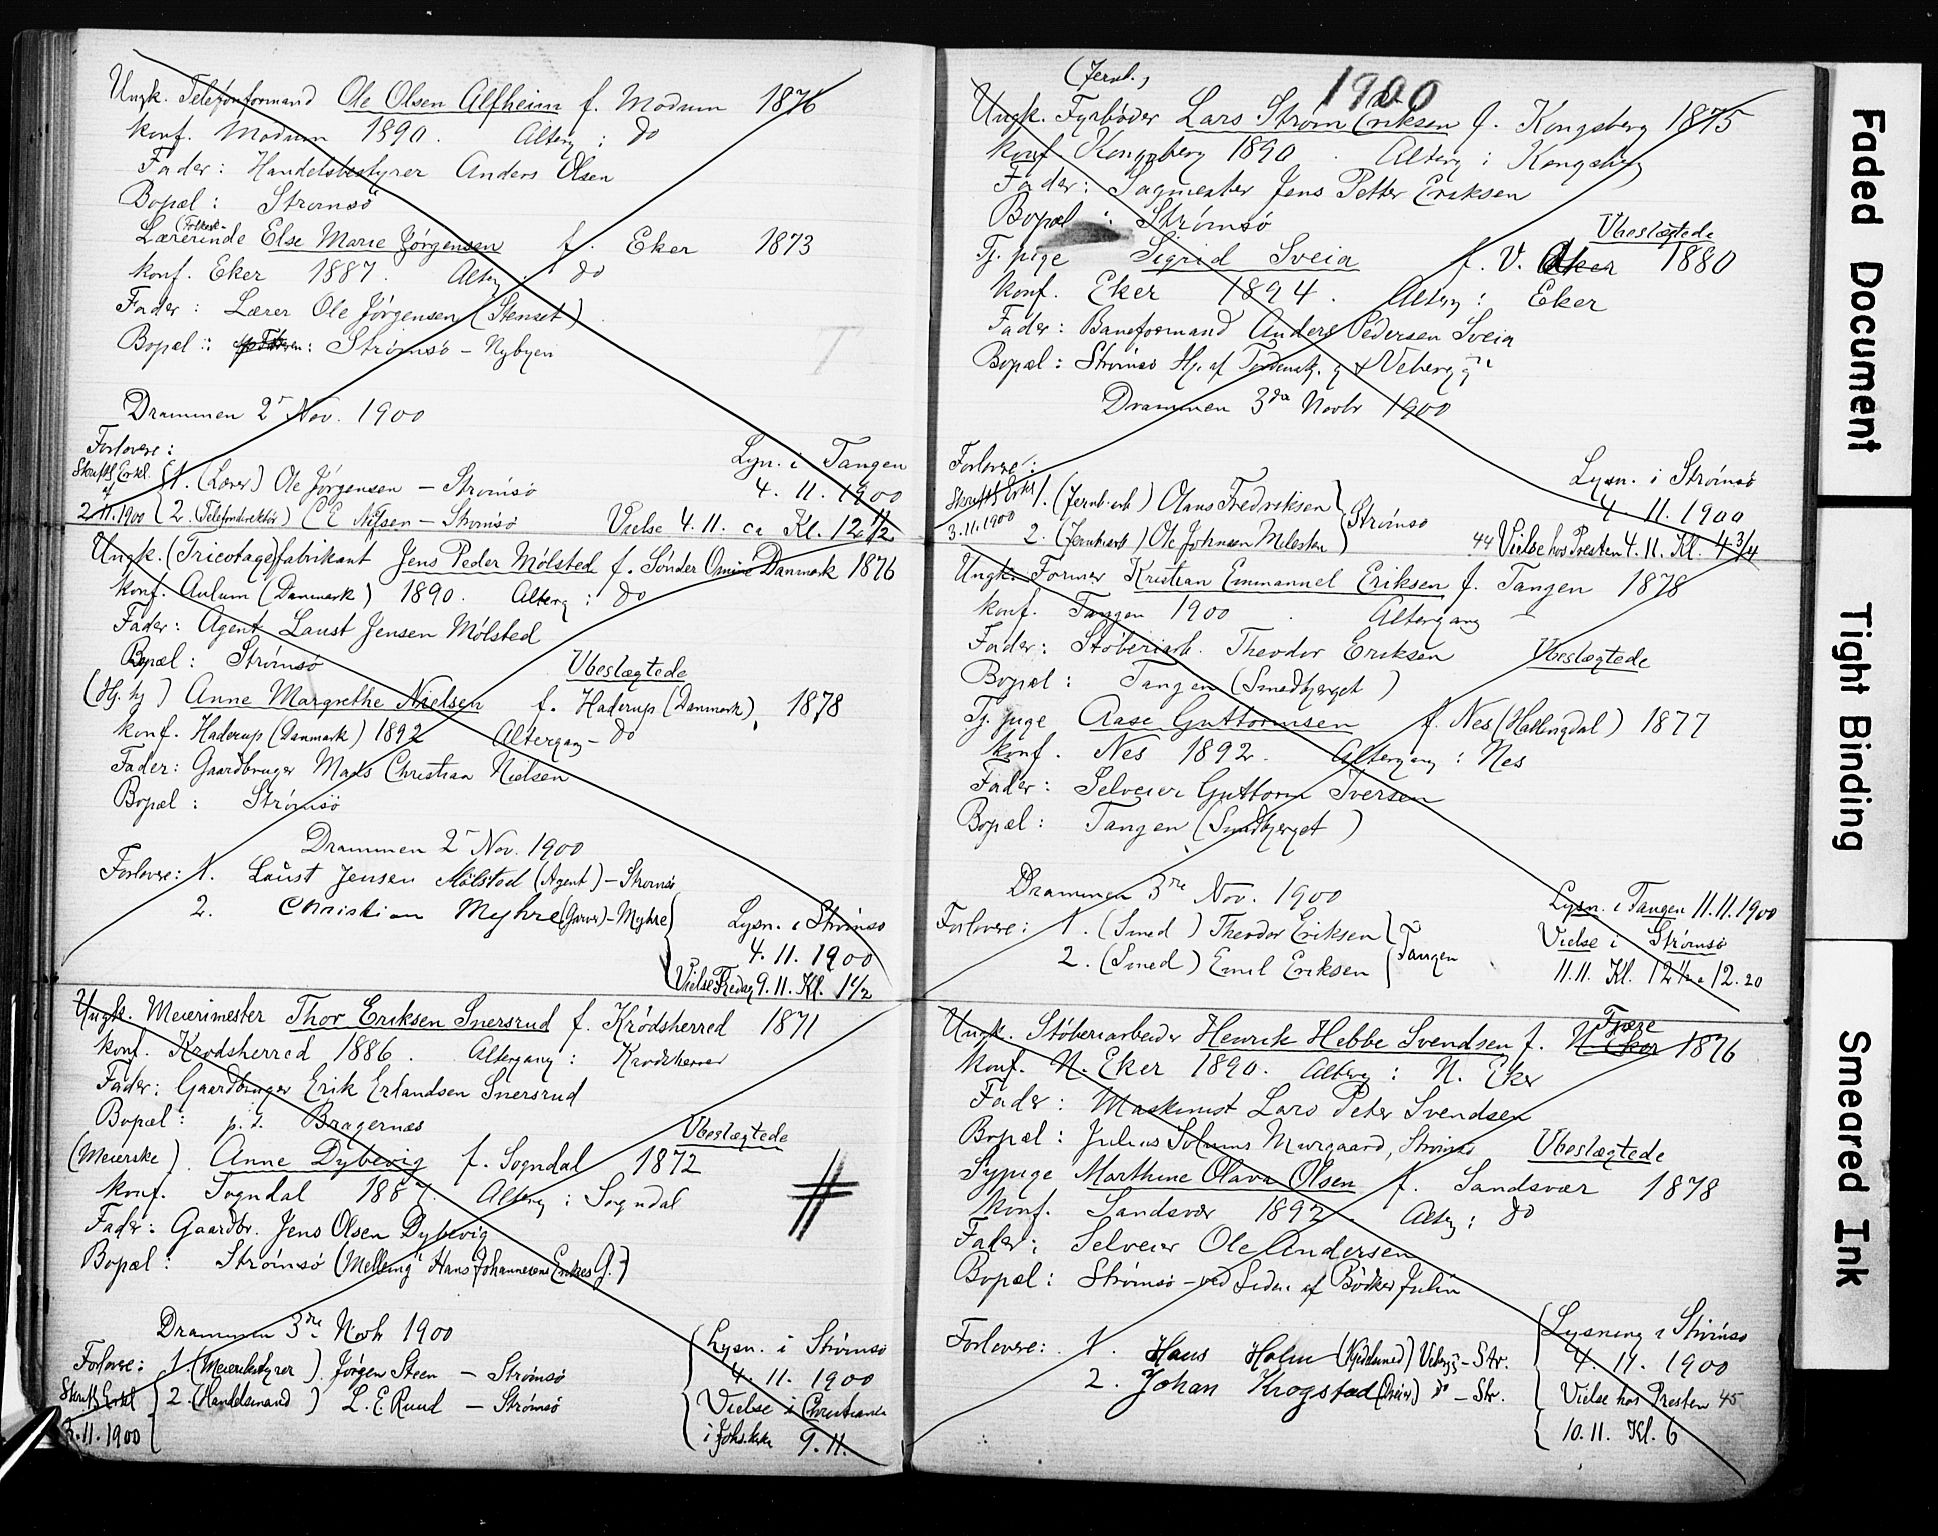 Ungk. Telefonformand Ole Olsen Alfheim f. Modum 1876
konf. Modum 1890. Alterg: do
Fader: Handelsbestyrer Anders Olsen
Bopæl: Strømsö
(Folkesk.
Lærerinde Else Marie Jørgensen f. Eker 1873
konf. Eker 1887. Alterg. do
Fader: Lærer Ole Jørgensen (Stenset)
Bopæl: Strømsö - Nybyen
Drammen 2' Nov. 1900
Forlovere:
Skriftl. Erkl. 1. (Lærer) Ole Jørgensen - Strømsö
af
2.11.1900 2. (Telefondirektör) C E Nilsen - Strømsö
Lysn. i Tangen
4. 11. 1900
Vielse 4. 11. ca Kl. 12 1/2
Ungk. (Tricotage)fabrikant Jens Peder Mölsted f. Sønder Danmark 1876
konf. Aulum (Danmark) 1890. Alterg: do
Fader: Agent Laust Jensen Mölsted
Bopæl: Strømsö
Ubeslægtede
(Hj. hj) Anne Margrethe Nielsen f. Haderup (Danmark), 1878
konf. Haderup (Danmark) 1892 Altergang - do
Fader: Gaardbruger Mads Christian Nielsen
Bopæl: Strømsö
Drammen 2' Nov. 1900
Forlovere: 1. Laust Jensen Mölsted (Agent) - Strømsö
2. Christian Myhre (Garver) - Myhre
Lysn. i Strömsö
4. 11. 1900
Vielse Fredag 9. 11. Kl. 1 1/2
Ungk. Meierimester Thor Eriksen Snersrud f. Krödsherred 1871
konf. Krödsherred 1886. Altergang: Krödsherred
Fader: Gaardbruger Erik Erlandsen Snersrud
Bopæl: p. t. Bragernæs
Ubeslægtede
(Meierske). Anne Dybevig f. Sogndal 1872
konf. Sogndal 1887. Alterg: Sogndal
#
Fader: Gaardbr. Jens Olsen Dybevig
Bopæl: Strømsö (Melleng Hans Johannesens Enkes G.)
Drammen 3die Novbr 1900
Forlovere: 1 (Meieribestyrer) Jørgen Steen - Strømsö
Skriftl. Erkl. 2. (Handelsmand) L. E. Ruud - Strømsö
3.11.1900
Lysn. i Strømsö
4. 11. 1900
Vielse i Christiania
i Johs.kirke 9. 11.
(Jernb.,
1900
Ungk. Fyrbøder Lars Strøm Eriksen f. Kongsberg 1875
konf Kongsberg 1890. Alterg: Kongsberg
Fader: Sagmester Jens Petter Eriksen
Bopæl: Strømsö
Ubeslægtede
Tj. pige Sigrid Sveia f. V. Aker 1880
konf. Eker 1894. Alterg: Eker
Fader: Baneformand Anders Pedersen Sveia
Bopæl: Strømsö Hj. af Tordenskj. g & Vebergg
Drammen 3die Novbr 1900
Forlovere:
Skriftl. Erkl. 1. (Jernb arb) Olaus Fredriksen
3.11.1900 2. (Jernbarb) Ole Johnsen
Strømsö
Lysn. i Strømsö
4. 11. 1900
44 Vielse hos Presten 4. 11. Kl. 4 3/4
Ungk. Former Kristian Emmanuel Eriksen f. Tangen 1878
konf. Tangen 1900. Altergang -
Fader: Støberiarb. Theodor Eriksen Ubeslægtede
Bopæl: Tangen (Smedbjerget)
Tj. pige Aase Guttormsen f. Nes (Hallingdal) 1877
konf. Nes 1892. Altergang: Nes
Fader: Selveier Guttorm Iversen
Bopæl: Tangen (Smedbjerget)
Drammen 3die Nov. 1900
Forlovere: 1. (Smed) Theodor Eriksen
2. (Smed) Emil Eriksen
Tangen
Lysn. i Tangen 11.11.1900
Vielse i Strømsö
11.11. Kl. 12 1/4 a 12.20
Fjære
Ungk. Støberiarbeider Henrik Hebbe Svendsen f. N. Eker 1876
konf. N. Eker 1890. Alterg: N. Eker
Fader: Maskinist Lars Peter Svendsen
Bopæl: Julius Solums Murgaard, Strømsö Ubeslægtede
Sypige Marthine Olava Olsen f. Sandsvær 1878
konf. Sandsvær 1892. Alterg: do
Fader: Selveier Ole Andersen
Bopæl: Strømsö - ved Siden af Bödker Julin
Forlovere: 1. Hans Holm - Str.
2. Johan Krogstad do - Str.
Lysning i Strömsö
4. 11. 1900
Vielse hos Presten 45
10. 11. Kl. 6
Faded Document
Tight Binding
Smeared Ink